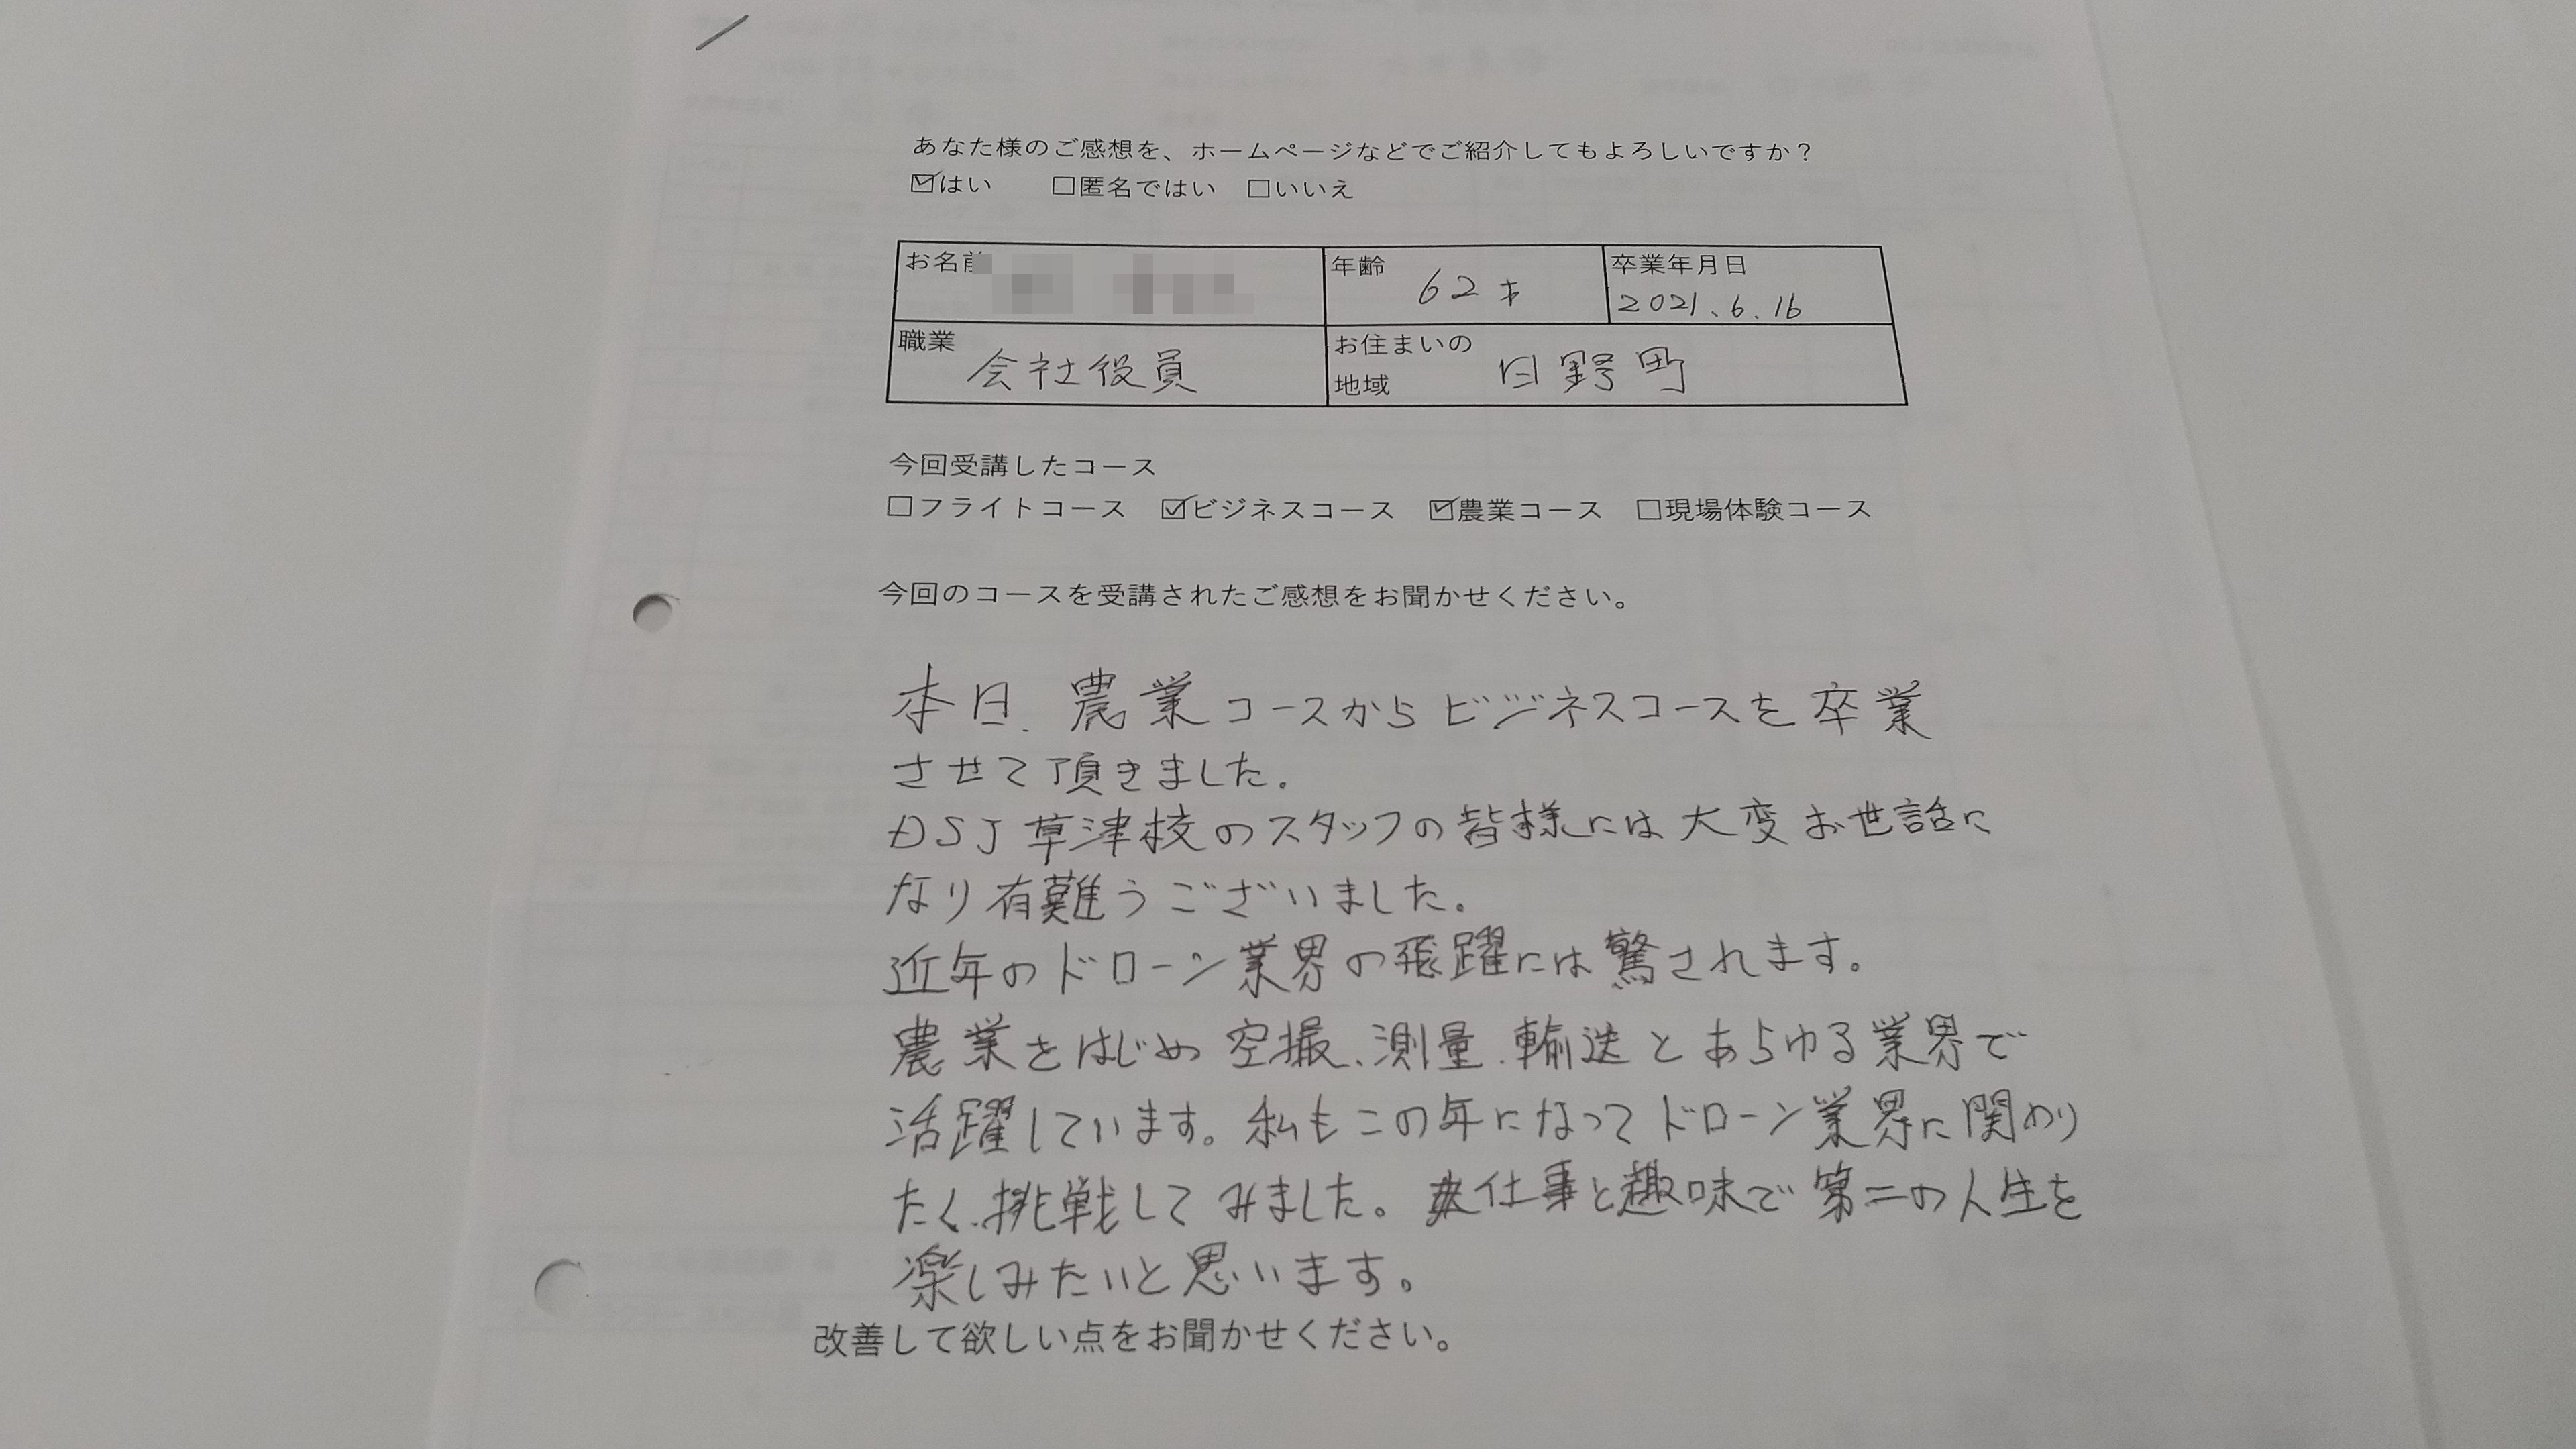 あなた様のご感想を、ホームページなどでご紹介してもよろしいですか？
☑はい　□匿名ではい　□いいえ
お名前
年齢 62才
卒業年月日
2021.6.16
職業 会社役員
お住まいの
地域 日野町
今回受講したコース
□フライトコース　☑ビジネスコース　☑農業コース　□現場体験コース
今回のコースを受講されたご感想をお聞かせください。
本日、農業コースからビジネスコースを卒業
させて頂きました。
DSJ草津校のスタッフの皆様には大変お世話に
なり有難うございました。
近年のドローン業界の飛躍には驚されます。
農業をはじめ空撮、測量、輸送とあらゆる業界で
活躍しています。私もこの年になってドローン業界に関わり
たく、挑戦してみました。仕事と趣味で第二の人生を
楽しみたいと思います。
改善して欲しい点をお聞かせください。